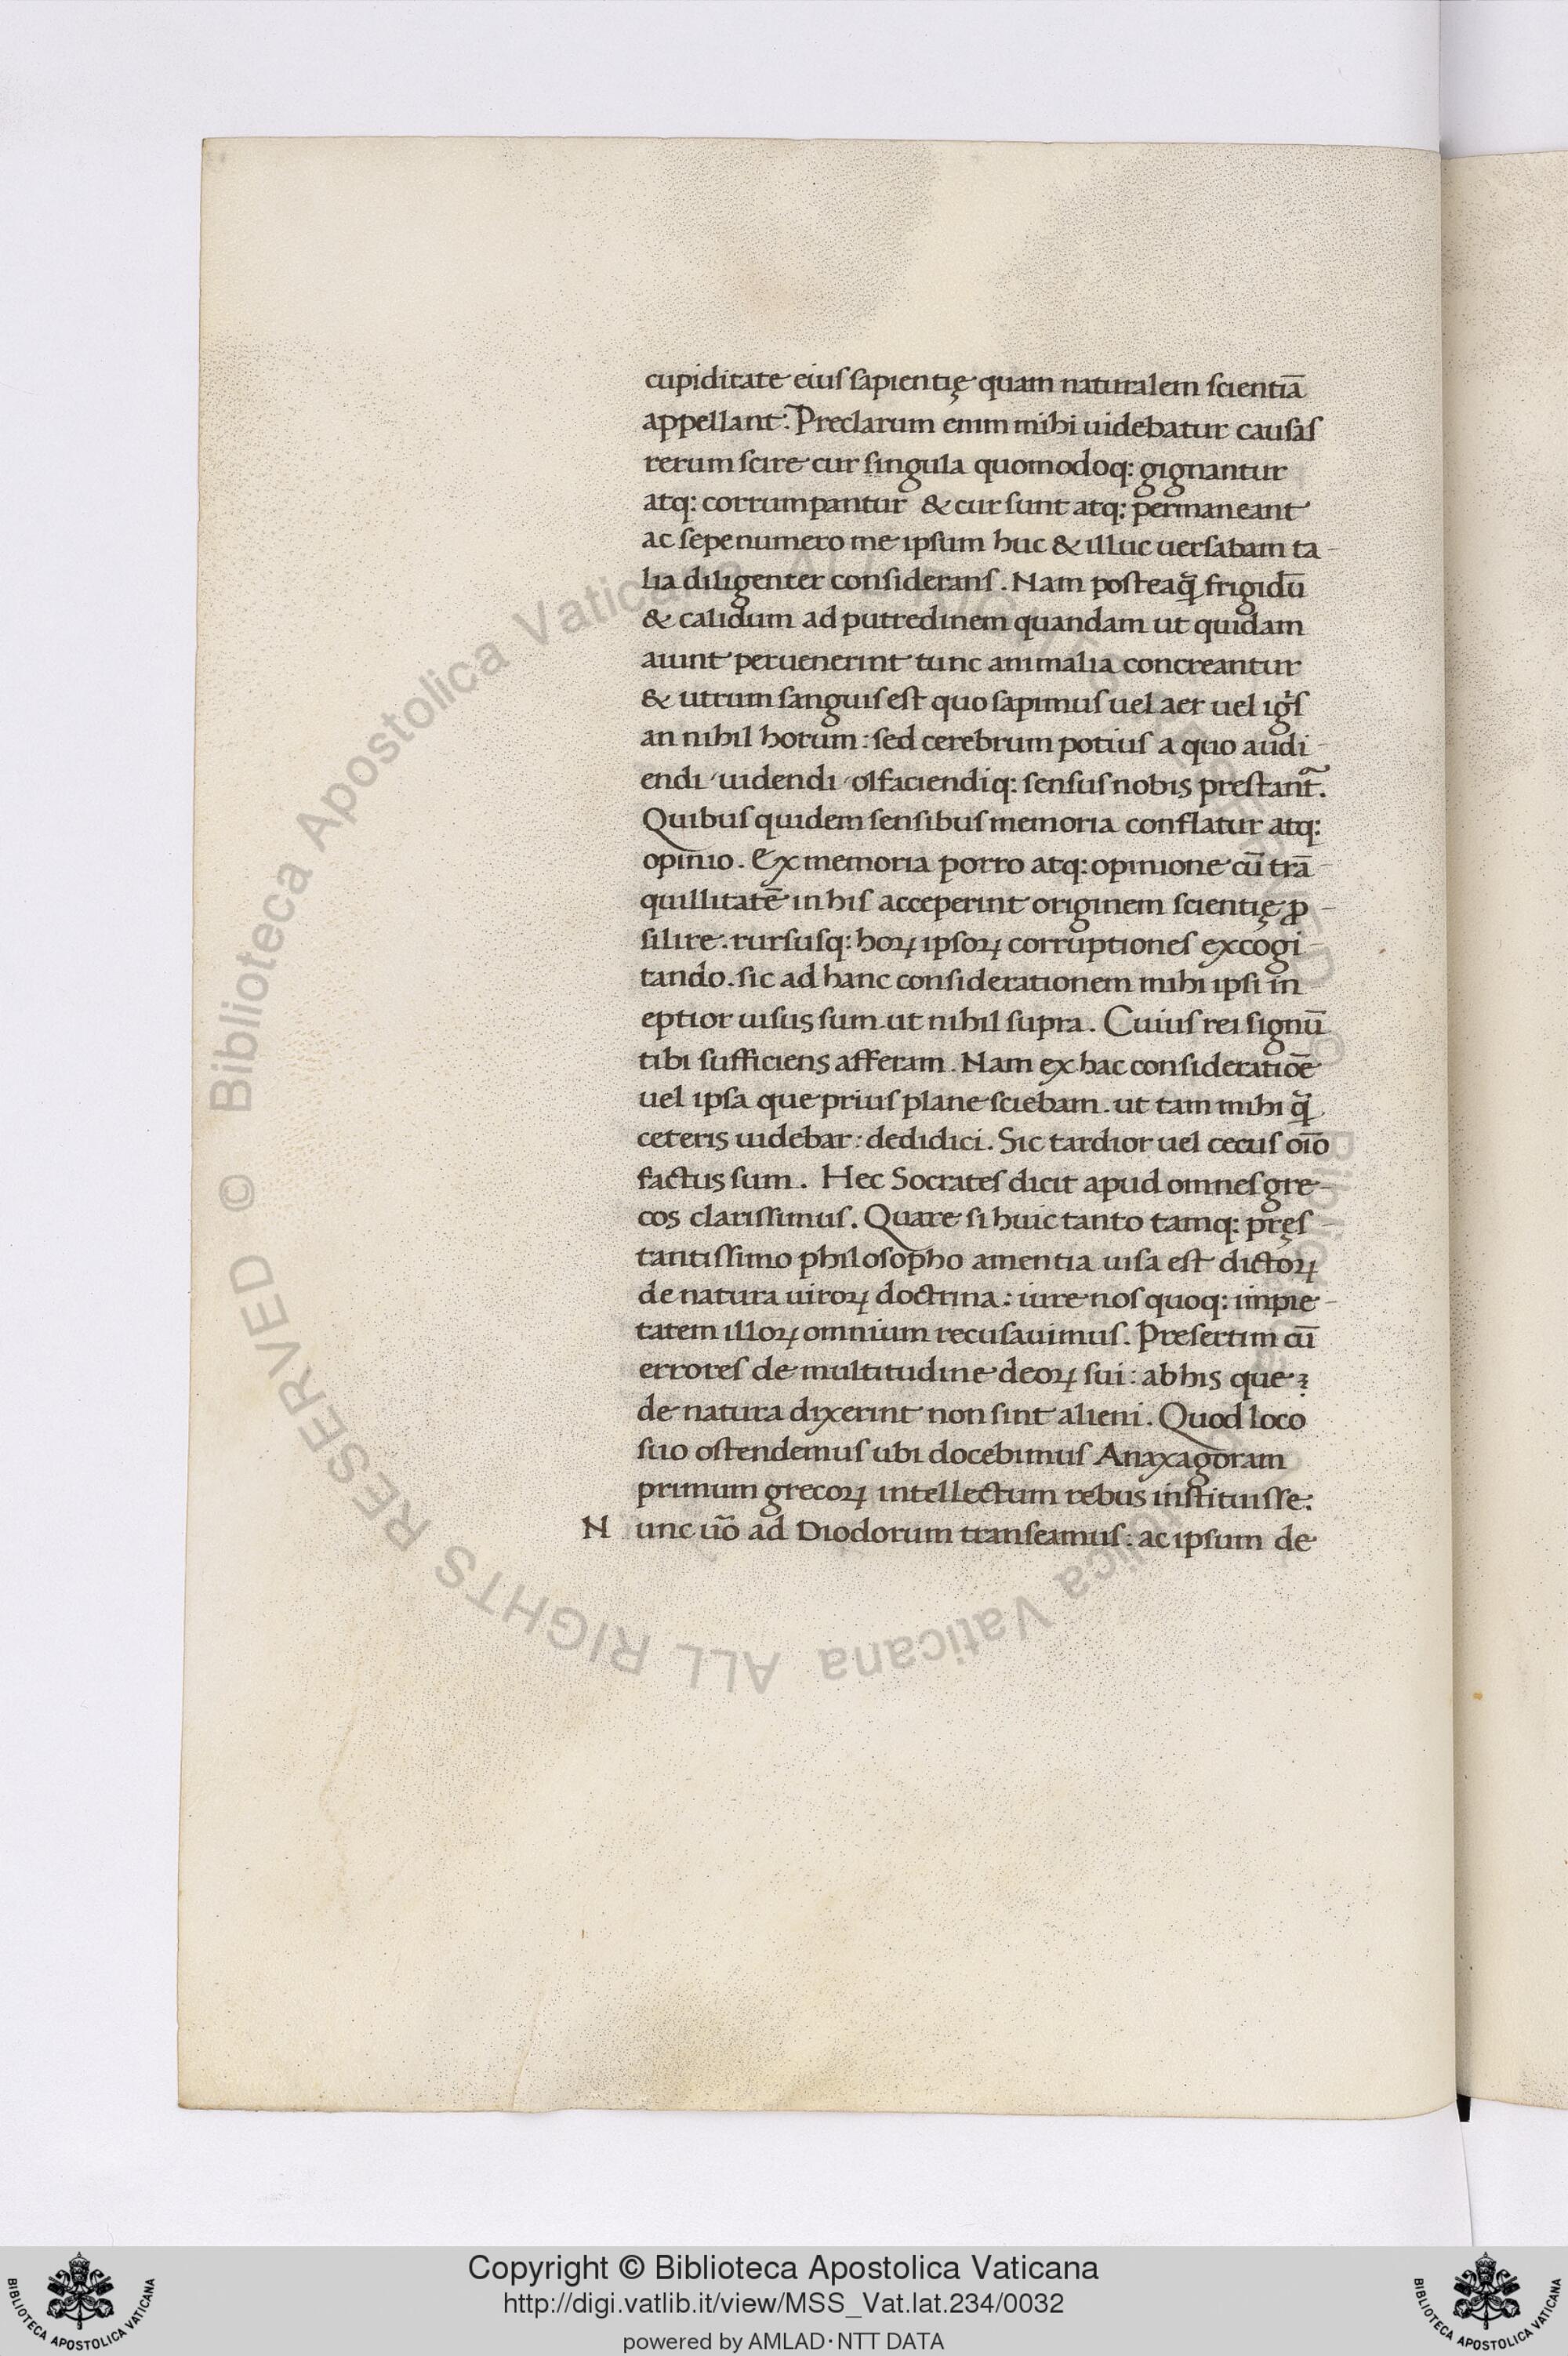 cupiditate eius sapientię quam naturalem scientiā
appellant. Preclarum enim mihi uidebatur causas
rerum scire cur singula quomodoq: gignantur
atq: corrumpantur & cur sunt atq: permaneant
ac sepenumero me ipsum huc & illuc uersabam ta-
lia diligenter considerans. Nam posteaq̃ frigidū
& calidum ad putredinem quandam ut quidam
aiunt peruenerint tunc animalia concreantur
& utrum sanguis est quo sapimus uel aer uel igi̇s
an nihil horum: sed cerebrum potius a quo audi-
endi / uidendi / olfaciendiq: sensus nobis prestant̃.
Quibus quidem sensibus memoria conflatur atq:
opinio. Ex memoria porro atq: opinione cū trā-
quillitatē in his acceperint originem scientię ꝓ-
silire. rursusq: hoꝝ ipsoꝝ corruptiones excogi-
tando. sic ad hanc considerationem mihi ipsi in-
eptior uisus sum. ut nihil supra. Cuius rei signū
tibi sufficiens afferam. Nam ex hac consideratiōe
uel ipsa que prius plane sciebam. ut tam mihi q̃
ceteris uidebar: dedidici. Sic tardior uel cecus oīo
factus sum. Hec Socrates dicit apud omnes gre-
cos clarissimus. Quare si huic tanto tamq: pręs-
tantissimo philosopho amentia uisa est dictoꝝ
de natura uiroꝝ doctrina: iure nos quoq: impie-
tatem illoꝝ omnium recusauimus. Presertim cū
errores de multitudine deoꝝ sui: ab his que
de natura dixerint non sint alieni. Quod loco
suo ostendemus ubi docebimus Anaxagoram
primum grecoꝝ intellectum rebus instituisse.
N unc uō ad Diodorum transeamus: ac ipsum de
Biblioteca Apostolica Vaticana ALL RIGHTS RESERVED ©
Copyright © Biblioteca Apostolica Vaticana
http://digi.vatlib.it/view/MSS_Vat.lat.234/0032
powered by AMLAD·NTT DATA
BIBLIOTECA APOSTOLICA VATICANA
BIBLIOTECA APOSTOLICA VATICANA